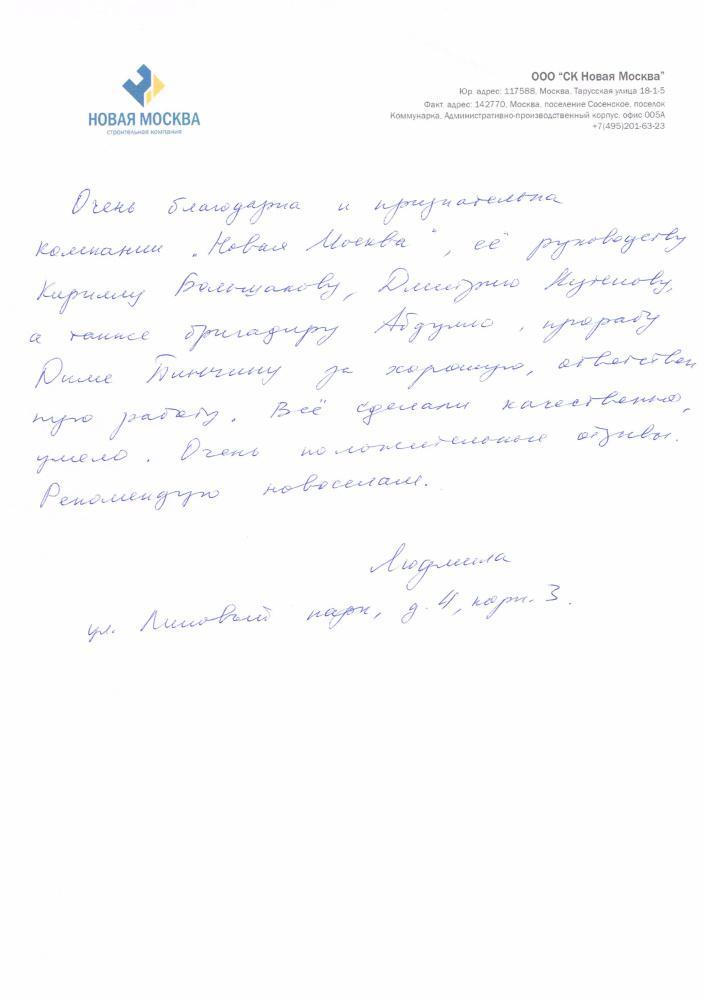 НОВАЯ МОСКВА
строительная компания
ООО "СК Новая Москва"
Юр. адрес: 117588, Москва, Тарусская улица 18-1-5
Факт. адрес: 142770, Москва, поселение Сосенское, поселок
Коммунарка, Административно-производственный корпус, офис 005А
+7(495)201-63-23
Очень благодарна и признательна
компании „Новая Москва", её руководству
Кириллу Большакову, Дмитрию
а также бригадиру Абдулло, прорабу
Диме за хорошую, ответствен
ную работу. Всё сделали качественно,
умело. Очень положительные отзывы.
Рекомендую новоселам.
Людмила
ул. Липовый парк, д. 4, корп. 3.